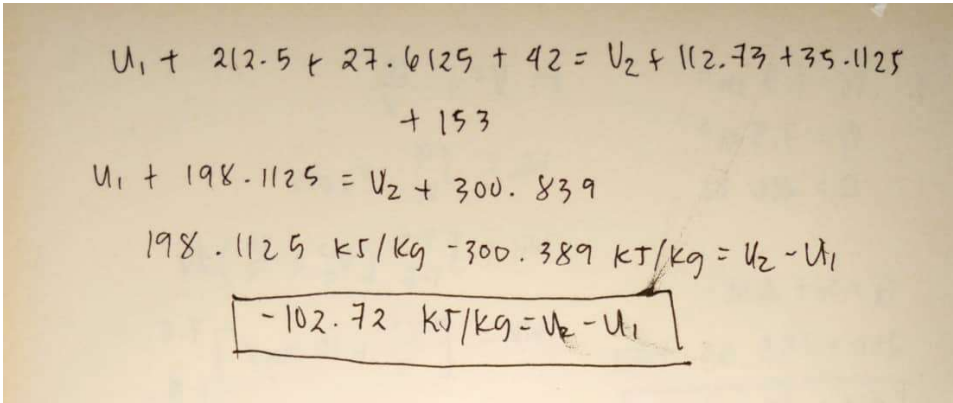 U₁ + 212.5 + 27.6125 + 42 = U₂ + 112.73 + 35.1125
+ 153
U₁ + 198.1125 = U₂ + 300.839
198.1125 KJ/Kg - 300.389 KJ/Kg = U₂ - U₁
-102.72 KJ/Kg = U₂ - U₁